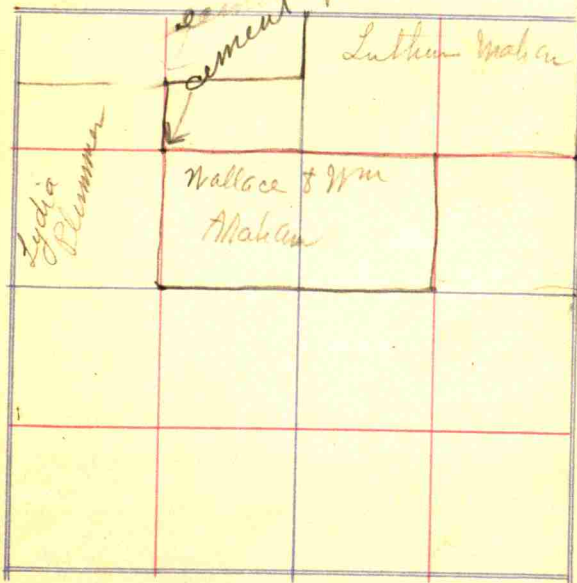 cement
Luther Mahan
Lydia
Plummer
Wallace & Wm